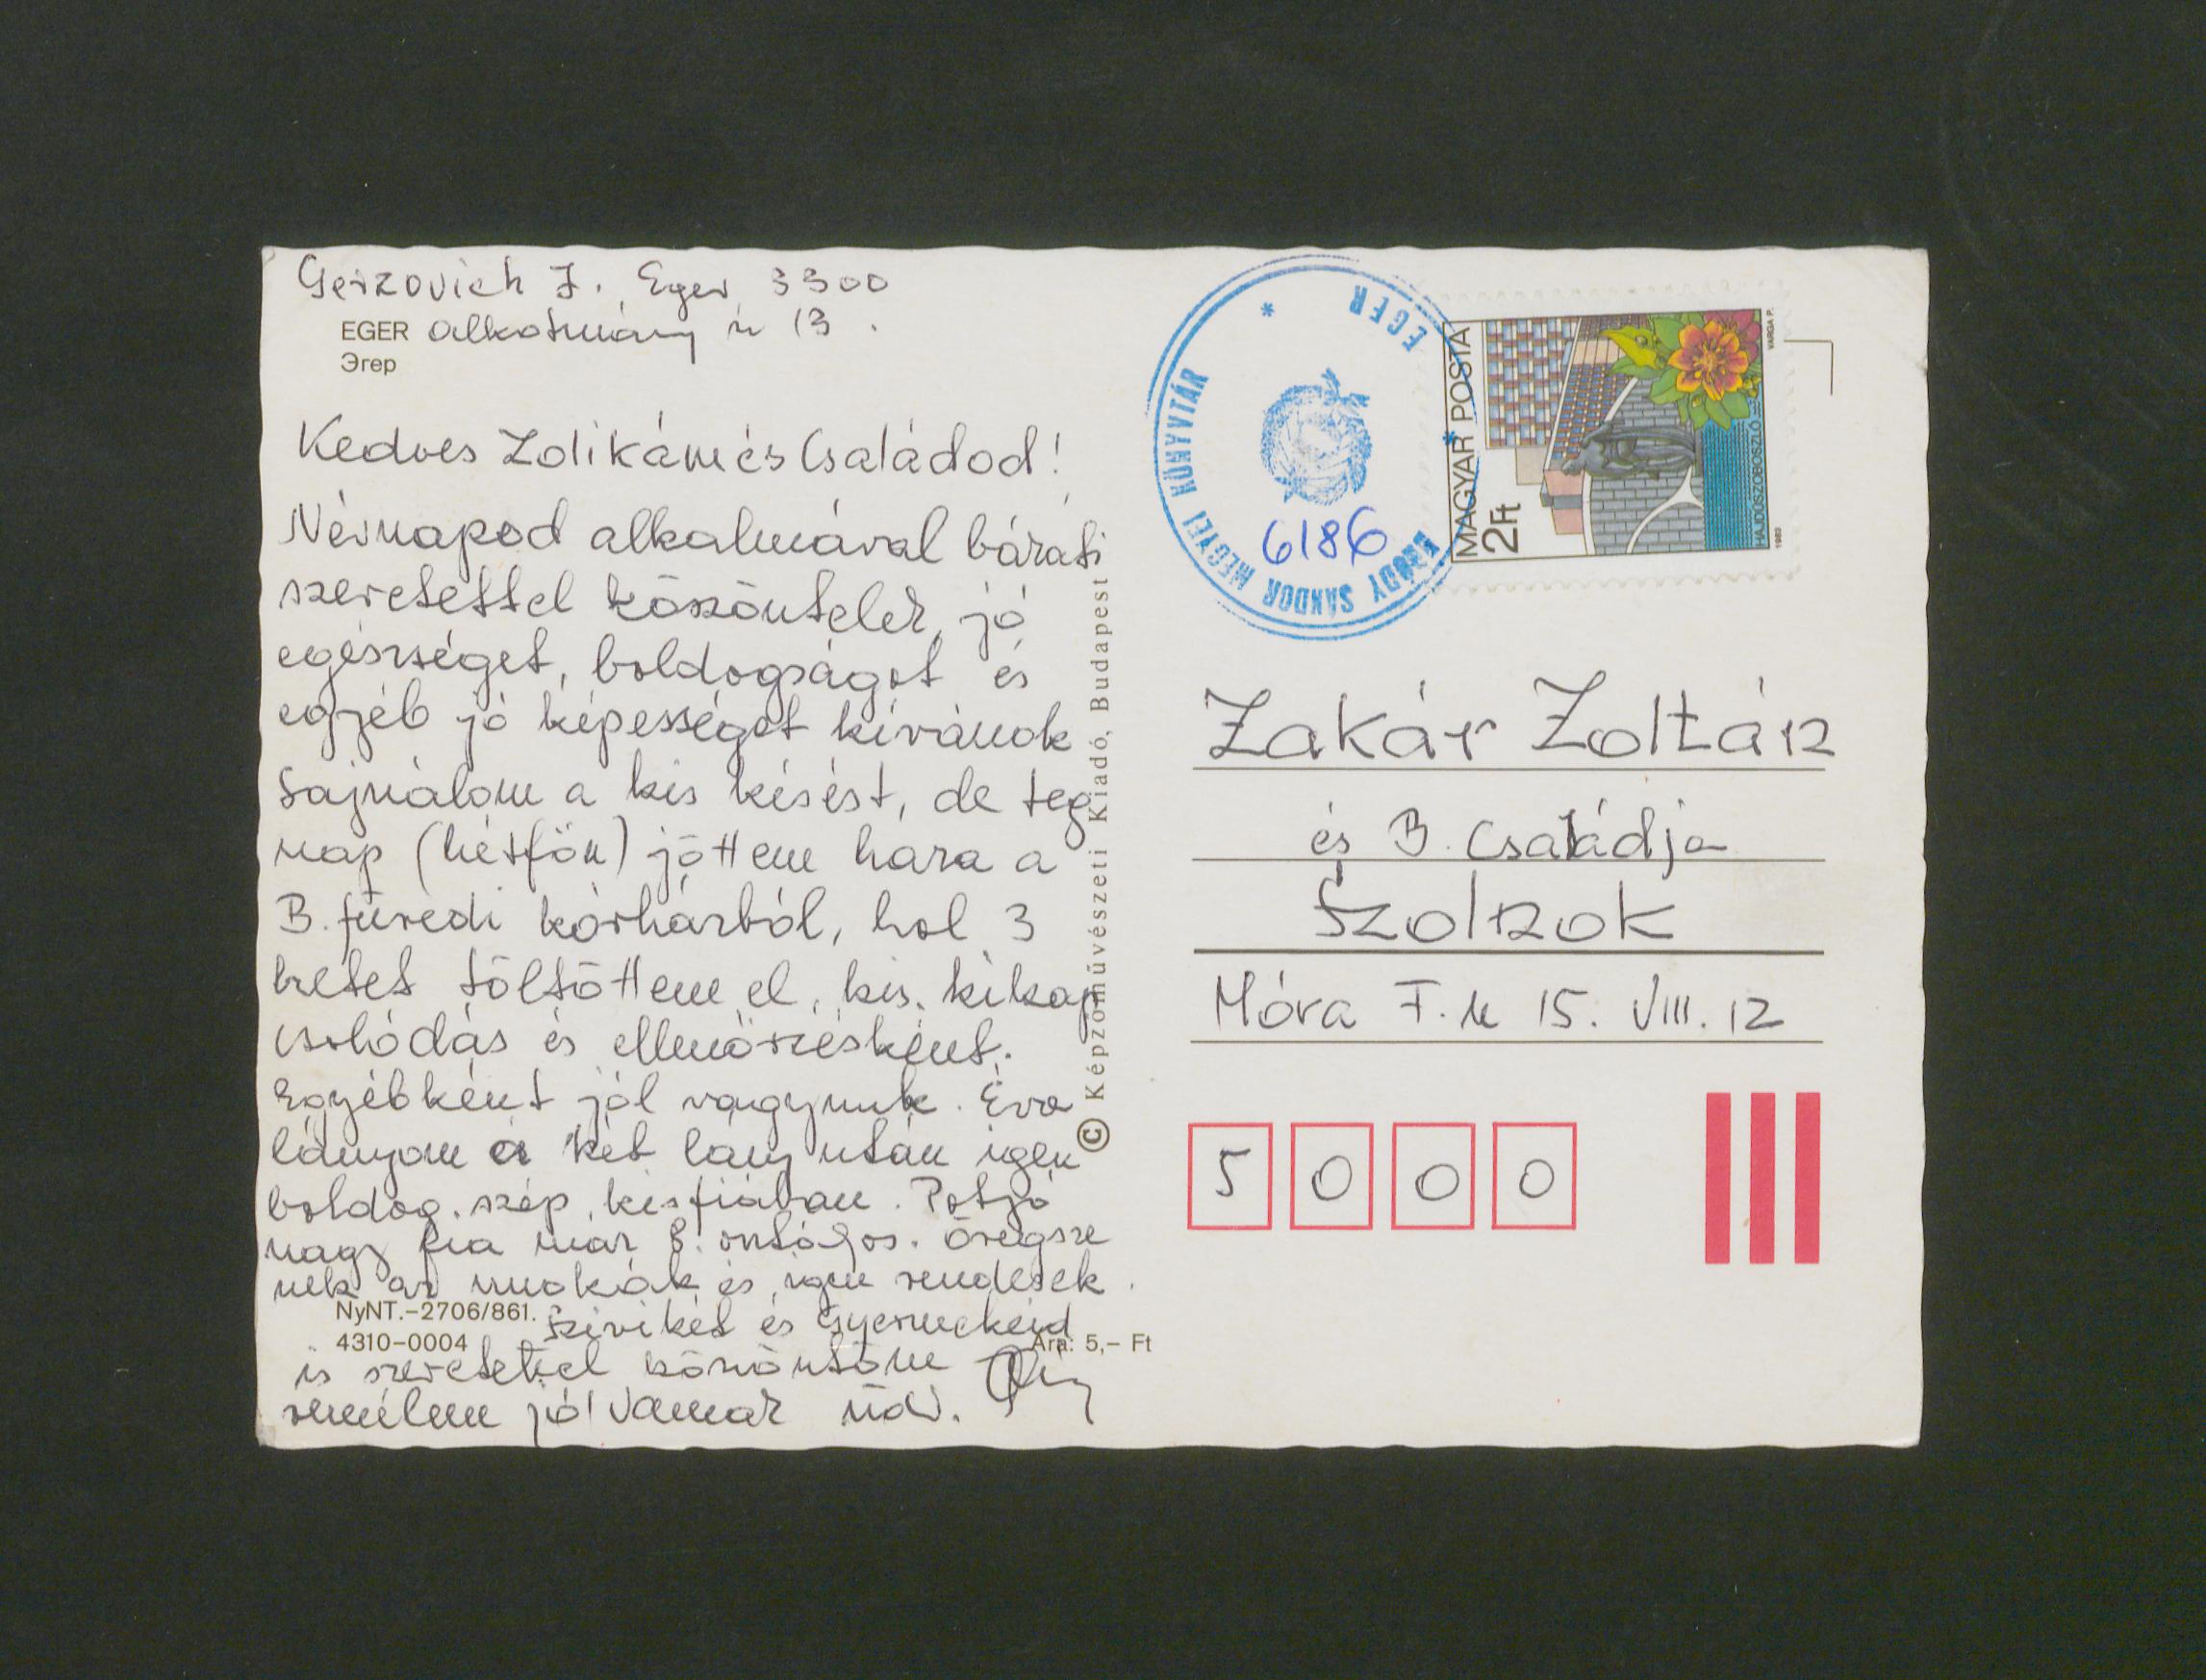 Gerzovich J. Eger 3300
EGER alkotmány u 13.
Эгер
Kedves Zolikám és Családod!
Névnapod alkalmával baráti
szeretettel köszöntelek, jó
egészséget, boldogságot és
egyéb jó képességet kívánok
Sajnálom a kis késést, de teg
nap (hétfőn) jöttem haza a
B. füredi kórházból, hol 3
hetet töltöttem el, kis kikap
csolódás és ellenőrzésként.
Egyébként jól vagyunk. Éva
lányom a két lány után igen
boldog szép kisfiában.
nagy fia már 8. osztályos. Öregsze
nek az unokák és igen rendesek.
NyNT.-2706/861.
4310-0004
Szivikét és Gyermekeid
Ára: 5,- Ft
is szeretettel köszöntöm
remélem jól vannak üdv.
© Képzőművészeti Kiadó, Budapest
BRÓDY SÁNDOR MEGYEI KÖNYVTÁR * EGER *
6186
MAGYAR POSTA
2Ft
HAJDÚSZOBOSZLÓ
VARGA P.
1983
Zakár Zoltán
és B. Családja
Szolnok
Móra F. u 15. VIII. 12
5 0 0 0